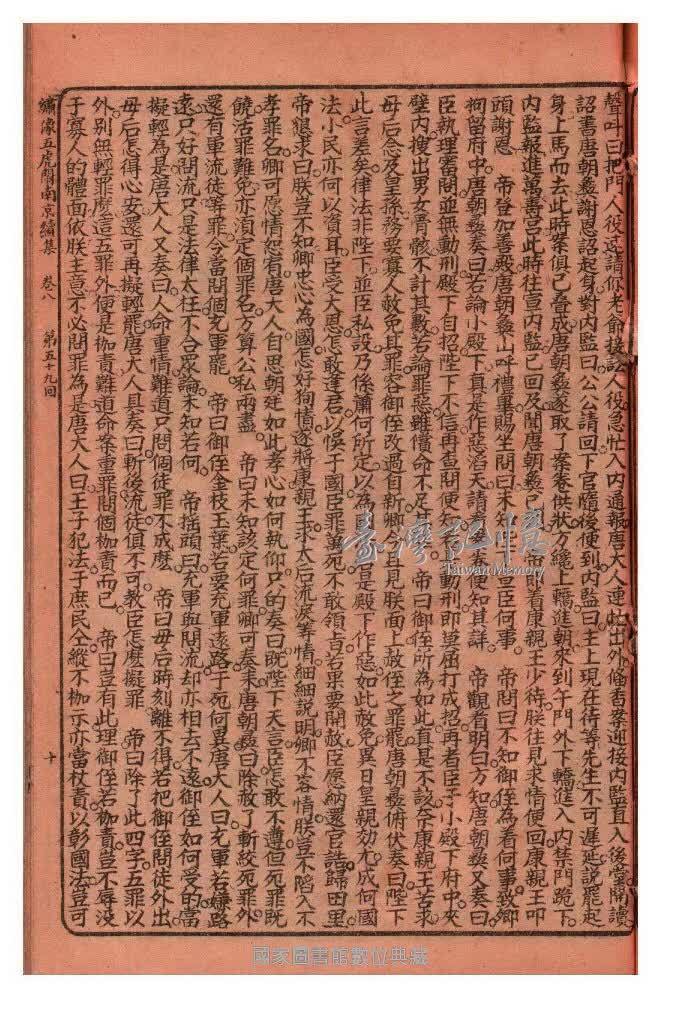 聲叫曰把門人役速請你老爺接詔人役急忙入內通報唐大人連忙出外俻香案迎接內監直入後堂開讀
詔書唐朝彝謝恩詔起身對內監曰公公請回下官隨後便到內監曰主上現在待等先生不可遲延說罷起
身上馬而去此時案俱已叠成唐朝彝遂取了案卷供狀方纔上轎進朝來到午門外下轎進入內禁門跪下
內監報進萬壽宮此時往宣內監已回及聞唐朝彝已 看康親王少待朕往見求情便回康親王叩
頭謝恩 帝登加善殿唐朝彝山呼禮畢賜坐問曰未知 宣臣何事 帝問曰不知御侄為着何事致鄉
拘留府中唐朝彝奏曰若論小殿下真是作惡滔天請 奏章便知其詳 帝觀看明曰方知唐朝彝又奏曰
臣執理審問並無動刑殿下自招陛下不信再查問便知 動刑即莫屈打成招再者臣于小殿下府中夾
壁內搜出男女骨骸不計其數若論罪惡雖償命不足其 帝曰御侄所為如此真是不該奈康親王苦求
母后念及皇孫務要寡人赦免其罪容御侄改過自新卿今且見朕面上赦侄之罪罷唐朝彝俯伏奏曰陛下
此言差矣律法非陛下並臣私設乃係蕭何所定以為 若是殿下作惡如此赦免異日皇親効尤成何國
法小民亦何以資耳臣受大恩怎敢逢君以悞于國臣罪萬死不敢領旨若果要開赦臣愿納還官誥歸田里
帝懇求曰朕豈不知卿忠心為國怎好狥情遂將康親王求太后流淚等情細細說明卿不容情朕豈不陷入不
孝罪名卿可愿情恕宥唐大人自思朝廷如此孝心如何執仰只的奏曰既陛下天言臣怎敢不遵但死罪既
饒活罪難免亦湏定個罪名方算公私兩盡 帝曰未知該定何罪卿可奏來唐朝彝曰除赦了斬絞死罪外
還有軍流徒等罪今當問個充軍罷 帝曰御侄金枝玉葉若要充軍遠路于死何異唐大人曰充軍若嫌路
遠只好問流只是法律太枉不合衆論未知若何 帝摇頭曰充軍與問流却亦相去不遠御侄如何受的當
擬輕為是唐大人又奏曰人命重情難道只問個徒罪不成麽 帝曰母后時刻離不得若把御侄問徒外出
母后怎得心安還可再擬輕罷唐大人具奏曰斬後流徒俱不可教臣怎麽擬罪 帝曰除了此四字五罪以
外別無輕罪麽這五罪外便是枷責難道命案重罪問個枷責而已 帝曰豈有此理御侄若枷責豈不辱没
于寡人的體面依朕主意不必問罪為是唐大人曰王子犯法于庶民仝縱不枷示亦當杖責以彰國法豈可
繡像五虎閙南京續集 卷八 第五十九回 十
臺灣記憶
Taiwan Memory
國家圖書館數位典藏